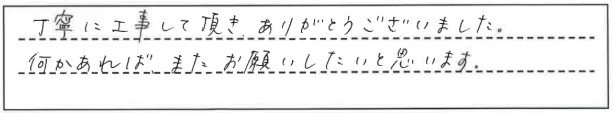 丁寧に工事して頂き、ありがとうございました。
何かあれば、またお願いしたいと思います。